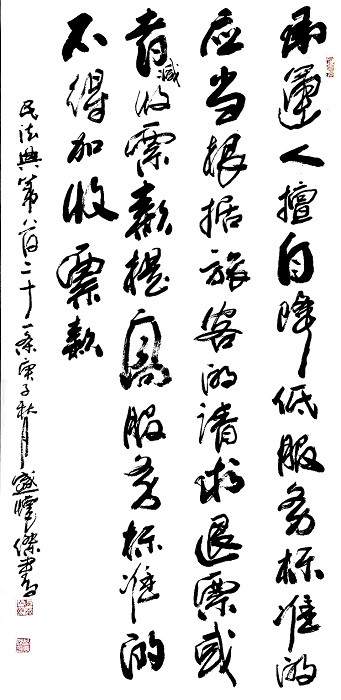 承运人擅自降低服务标准的
应当根据旅客的请求退票或
者减收票款提高服务标准的
不得加收票款
民法典第八百二十一条庚子秋月盛煙傑书